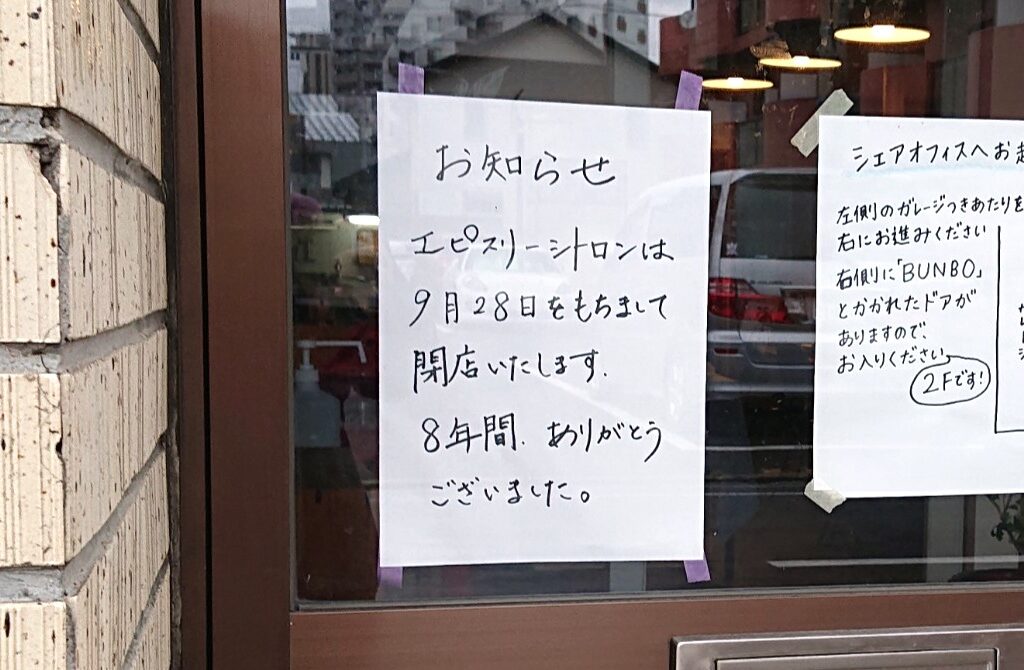 お知らせ
エピスリーシトロンは
9月28日をもちまして
閉店いたします.
8年間.ありがとう
ございました。
シェアオフィスへお
左側のガレージつきあたりを
右にお進みください
右側に「BUNBO」
とかかれたドアが
ありますので、
お入りください
2Fです!